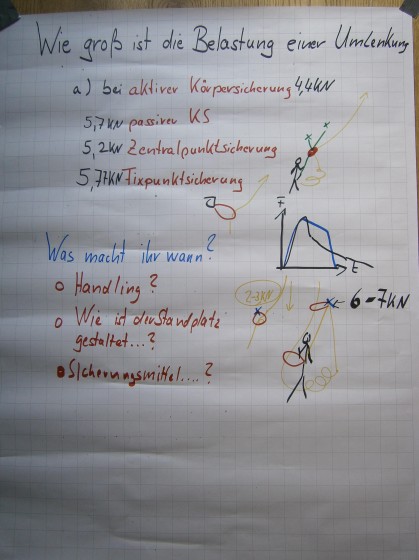 Wie groß ist die Belastung einer Umlenkung
a) bei aktiver Körpersicherung 4,4KN
5,7KN passiver KS
5,2KN Zentralpunktsicherung
5,77KN Fixpunktsicherung
F
t
Was macht ihr wann?
Handling?
2-3KN
6-7KN
Wie ist der Standplatz
gestaltet...?
Sicherungsmittel....?